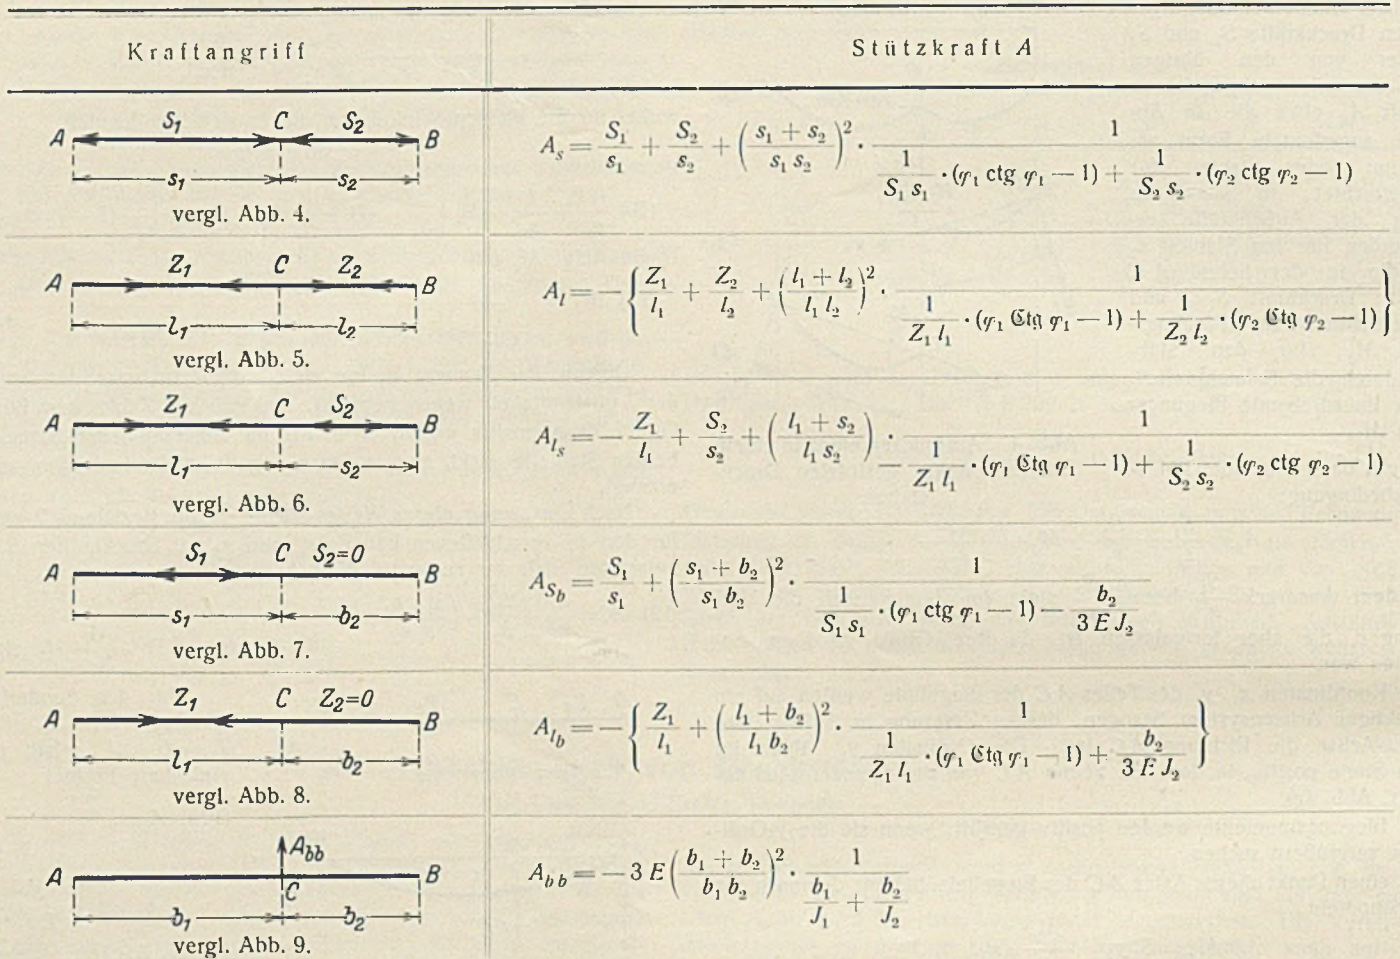 Kraftangriff Stützkraft A
A S₁ C S₂ B
s₁ s₂
vergl. Abb. 4.
A_s = S₁/s₁ + S₂/s₂ + ((s₁ + s₂)/(s₁ s₂))² · 1/(1/(S₁ s₁) · (φ₁ ctg φ₁ − 1) + 1/(S₂ s₂) · (φ₂ ctg φ₂ − 1))
A Z₁ C Z₂ B
l₁ l₂
vergl. Abb. 5.
A_l = −{Z₁/l₁ + Z₂/l₂ + ((l₁ + l₂)/(l₁ l₂))² · 1/(1/(Z₁ l₁) · (φ₁ Ctg φ₁ − 1) + 1/(Z₂ l₂) · (φ₂ Ctg φ₂ − 1))}
A Z₁ C S₂ B
l₁ s₂
vergl. Abb. 6.
A_ls = − Z₁/l₁ + S₂/s₂ + ((l₁ + s₂)/(l₁ s₂)) · 1/(− 1/(Z₁ l₁) · (φ₁ Ctg φ₁ − 1) + 1/(S₂ s₂) · (φ₂ ctg φ₂ − 1))
A S₁ C S₂=0 B
s₁ b₂
vergl. Abb. 7.
A_Sb = S₁/s₁ + ((s₁ + b₂)/(s₁ b₂))² · 1/(1/(S₁ s₁) · (φ₁ ctg φ₁ − 1) − b₂/(3 E J₂))
A Z₁ C Z₂=0 B
l₁ b₂
vergl. Abb. 8.
A_lb = −{Z₁/l₁ + ((l₁ + b₂)/(l₁ b₂))² · 1/(1/(Z₁ l₁) · (φ₁ Ctg φ₁ − 1) + b₂/(3 E J₂))}
A_bb
A C B
b₁ b₂
vergl. Abb. 9.
A_bb = − 3 E ((b₁ + b₂)/(b₁ b₂))² · 1/(b₁/J₁ + b₂/J₂)